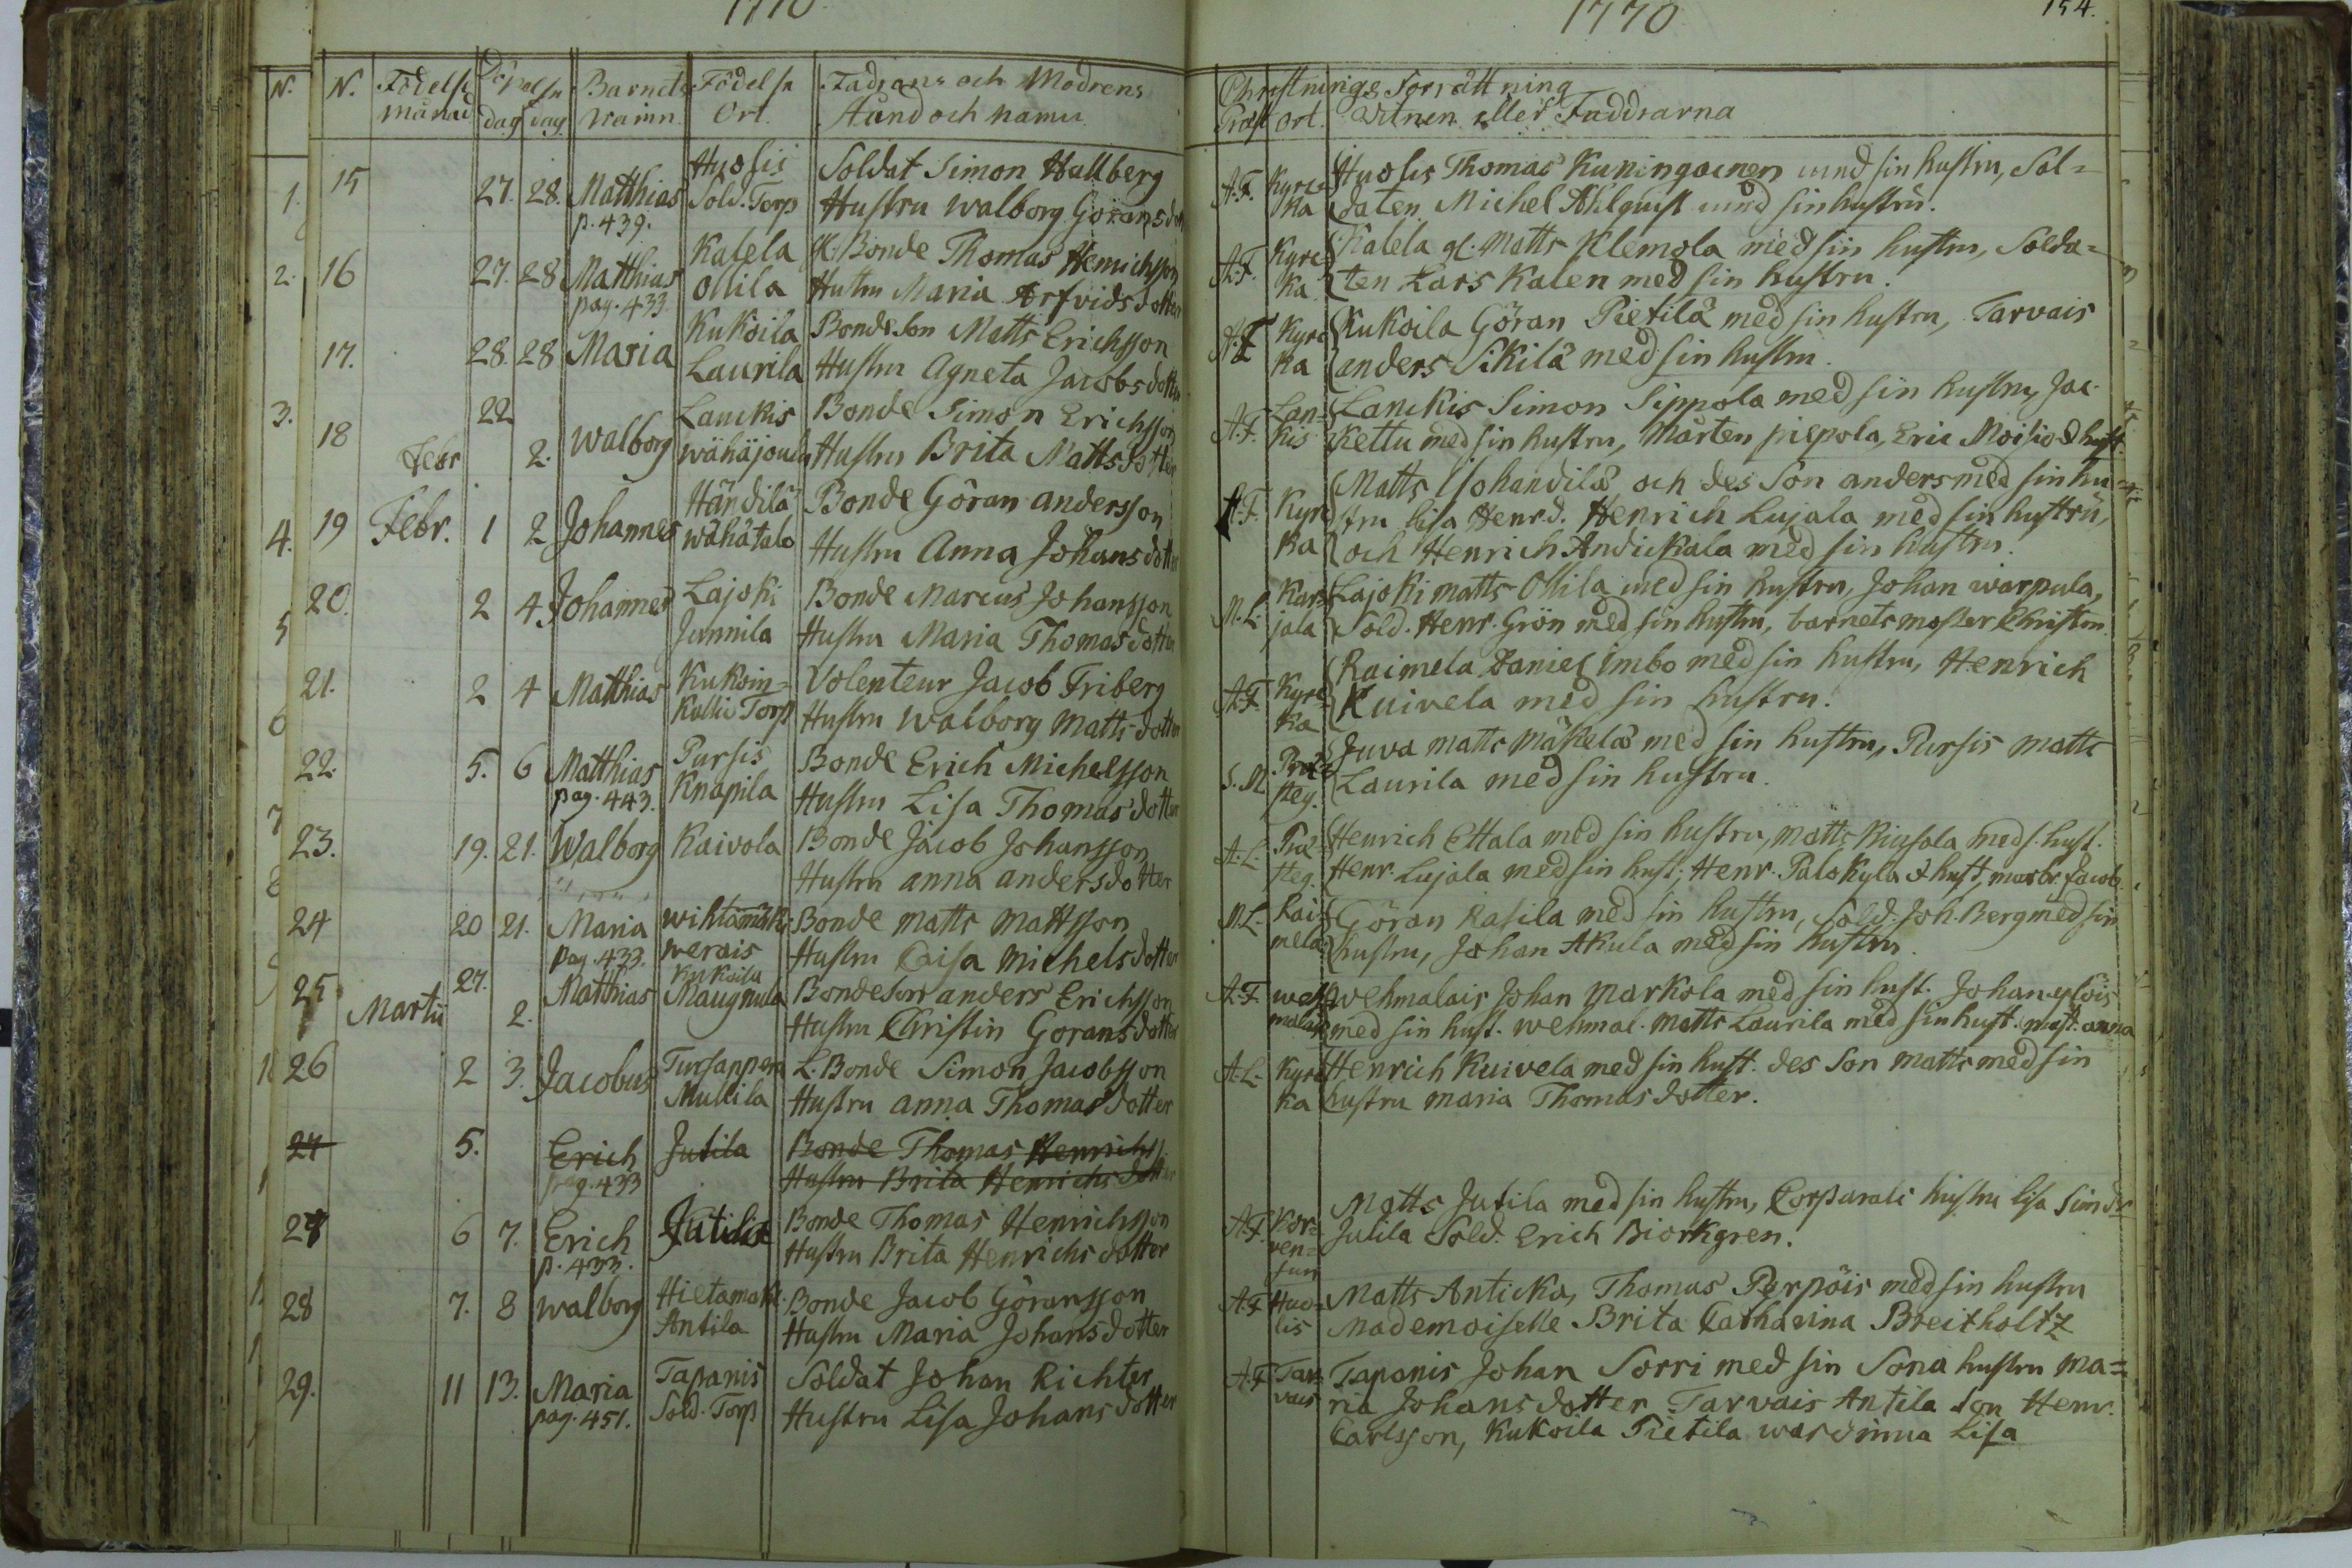 1770
N. N. Födelse Månad Döpelse dag dag Barnets Namn Födelse Ort. Fadrens och Modrens Stånd och namn
15 27. 28. Matthias Huolis Soldat Simon Hallberg
p. 439. Sold. Torp Hustru Walborg Göransdott
16 27. 28 Matthias Kalela Bonde Thomas Henrichsson
pag. 433 Ollila Hustru Maria Arfvidsdotter
17. 28. 28 Maria Kukoila Bonde Son Matts Erichsson
Laurila Hustru Agneta Jacobsdotter
18 22 Walborg Lanckis Bonde Simon Erichsson
Febr 2. wähäjouda Hustru Brita Mattsdotter
19 Febr. 1 2 Johannes Händilä Bonde Göran andersson
wähätalo Hustru Anna Johansdotter
20. 2 4 Johannes Lajoki Bonde Marcus Johansson
Junnila Hustru Maria Thomasdotter
21. 2 4 Matthias Kukoin= Volenteur Jacob Friberg
Torp Hustru Walborg Mattsdotter
22. 5. 6 Matthias Pursis Bonde Erich Michelsson
pag. 443. Knapila Hustru Lisa Thomasdotter
23. 19. 21. Walborg Kaivola Bonde Jacob Johansson
Hustru anna andersdotter
24 20 21. Maria Bonde Matts Mattsson
pag. 433. werais Hustru Caisa Michelsdotter
25 27. Matthias Kukoila Maugnula Bondeson anders Erichsson
Martii 2. Hustru Christin Göransdotter
26 2 3. Jacobus L. Bonde Simon Jacobsson
Mullila Hustru anna Thomasdotter
5. Erich Jutila Bonde Thomas Henrichs
pag. 433 Hustru Brita Henrichsdotter
27 6 7. Erich Jutila Bonde Thomas Henrichsson
p. 433. Hustru Brita Henrichsdotter
28 7. 8 Walborg Hietamäk. Bonde Jacob Göransson
Antila Hustru Maria Johansdotter
29. 11 13. Maria Tapanis Soldat Johan Richter
pag. 451. Sold. Torp Hustru Lisa Johansdotter
1770 154.
Christnings Förrättning
Präst ort. Witnen eller Faddrarna
A. F. Kyrc= Huolis Thomas Kuningainen med sin hustru, Sol=
ka daten Michel Ahlquist med sin hustru.
A. F. Kyrc= Kalela gl. Matts Klemola med sin hustru, Solda=
ka ten Lars Kalen med sin hustru.
A. F Kyrc Kukoila Göran Pietilä med sin hustru, Tarvais
ka anders Sikilä med sin hustru.
A. F. Lan= Lanckis Simon Sippola med sin hustru, Jac.
kis Kettu med sin hustru, Mårten piepola, Eric Moisio & hust.
A. F. Kyrc Matts Isohandilä och des Son anders med sin hu=
stru lisa Henr.d. Henrich Lujala med sin hustru,
ka och Henrich Andickala med sin hustru.
M. L. Kar= Lajoki matts Ollila med sin hustru, Johan warpula,
jala Sold. Henr. Grön med sin hustru, barnets moster Christin.
A. F. Kyrc= Raimela Daniel imbo med sin hustru, Henrich
ka Kuivela med sin hustru.
S. M. Prä= Juva matts Mäkelä med sin hustru, Pursis matts
steg. Laurila med sin hustru.
A. L. Prä= Henrich Ettala med sin hustru, matts med s. hust.
steg. Henr. Lujala med sin hust; Henr. Palokyla & hust, morbr. Jacob.
M. L. Rai= Göran Rasila med sin hustru, Sold. Joh. Berg med sin
mela hustru, Johan Akula med sin hustru.
A. F. weh= wehmalais Johan Markola med sin hust. Johan
malais med sin hust. wehmal. matts Laurila med sin hust. anna
A. L. Kyrc Henrich Kuivela med sin hust. des Son matts med sin
ka hustru maria Thomasdotter.
Matts Jutila med sin hustru, Corporals hustru lisa Simdr
A. F. Kor= ven= Jutila Sold. Erich Biorkgren.
suu
A. F. Huo= Matts Anticka, Thomas Perpöis med sin hustru
lis Mademoiselle Brita Catharina Breitholtz
A. F. Tar= Tapanis Johan Sorri med sin Sona hustru Ma=
vais ria Johansdotter Tarvais Antila Son Henr.
Carlsson, Kukoila Pietila wärdinna Lisa